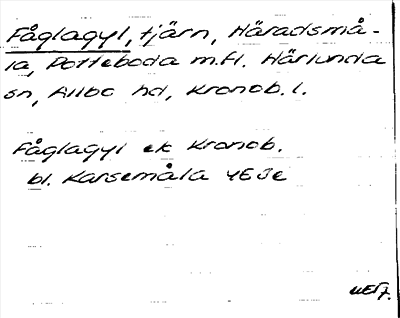 Fåglagyl, tjärn, Häradsmå-
la, Potteboda m.fl. Härlunda
sn, Allbo hd, Kronob. l.
Fåglagyl ek Kronob.
bl. Karsemåla 4E3e